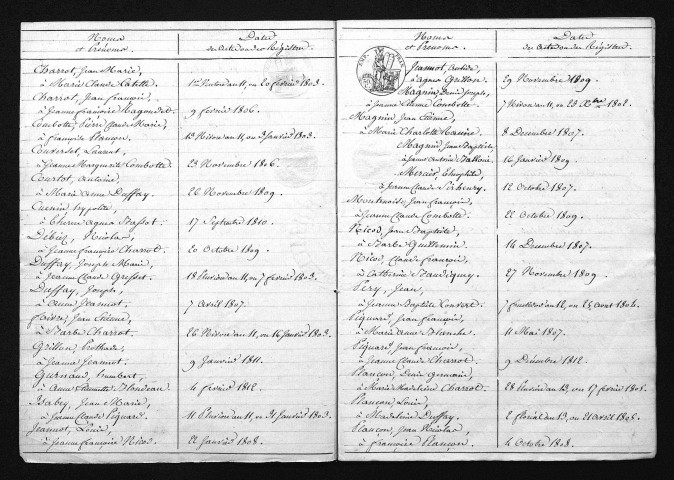 Noms
et Prénoms.
Dates
des actes ou des Registres.
Charrot, Jean Marie,
à Marie Claude Catitte
1er Ventose an 11, ou 20 février 1803.
Charrot, Jean françois,
à Jeanne françoise Ragondet.
9 février 1806.
Combotte, Pierre Claude Marie,
à françoise Plançon.
13 Nivose an 11, ou 3 Janvier 1803.
Couverdet, Laurent,
à Jeanne Marguerite Combotte.
23 Novembre 1806.
Courtot, antoine,
à Marie anne Duffay.
26 Novembre 1809.
Cuenin hypolite,
à Therese agnes
17 Septembre 1810.
Débiez, Nicolas,
à Jeanne françoise Charrot.
20 Octobre 1809.
Duffay, Joseph Marie,
à Jeanne Claude Gresset.
18 Pluviose an 11, ou 7 février 1803.
Duffay, Joseph,
à anne Jeannot.
7 avril 1807.
faivre, Jean Etienne,
à Barbe Charrot.
26 Nivose an 11, ou 16 Janvier 1803.
Grillon, Prothade,
à Jeanne Jeannot.
9 Janvier 1811.
humbert,
à anne Pierrette
4 février 1812.
Isabey, Jean Marie,
à Jeanne Claude Piquard.
11 Pluviose an 11, ou 31 Janvier 1803.
Jeannot, Louis,
à Jeanne françoise Nicod.
22 Janvier 1808.
Noms
et Prénoms.
Dates
des actes ou des Registres.
Jeannot,
à agnes Grillon.
29 Novembre 1809.
Magnin, Denis Joseph,
à Jeanne Etienne Combotte.
7 Nivose an 11, ou 28 Xbre 1802.
Magnin, Jean Etienne,
à Marie Charlotte
8 Décembre 1807.
Magnin, Jean Baptiste,
à Jeanne Antoine
16 Janvier 1809.
Mercier, Théophile,
à Jeanne Claude
12 Octobre 1807.
Jean françois,
à Jeanne Claude Combotte.
22 Octobre 1809.
Nicod, Jean Baptiste,
à Barbe Guillemin.
14 Décembre 1807.
Nicod, Claude françois,
à Catherine
27 Novembre 1809.
Péry, Jean,
à Jeanne Baptiste
an 12, ou 25 Aout 1804.
Piquard, Jean françois,
à Marie anne Blanche.
11 Mai 1807.
Piquard, Jean françois,
à Jeanne Claude Charrot.
9 Décembre 1812.
Plançon, Denis Germain,
à Marie Madeleine Charrot.
28 Pluviose an 13, ou 17 février 1805.
Plançon, Louis,
à Madeleine Duffay.
2 floréal an 13, ou 21 avril 1805.
Plançon, Jean Nicolas,
à françoise Plançon.
4 Octobre 1808.